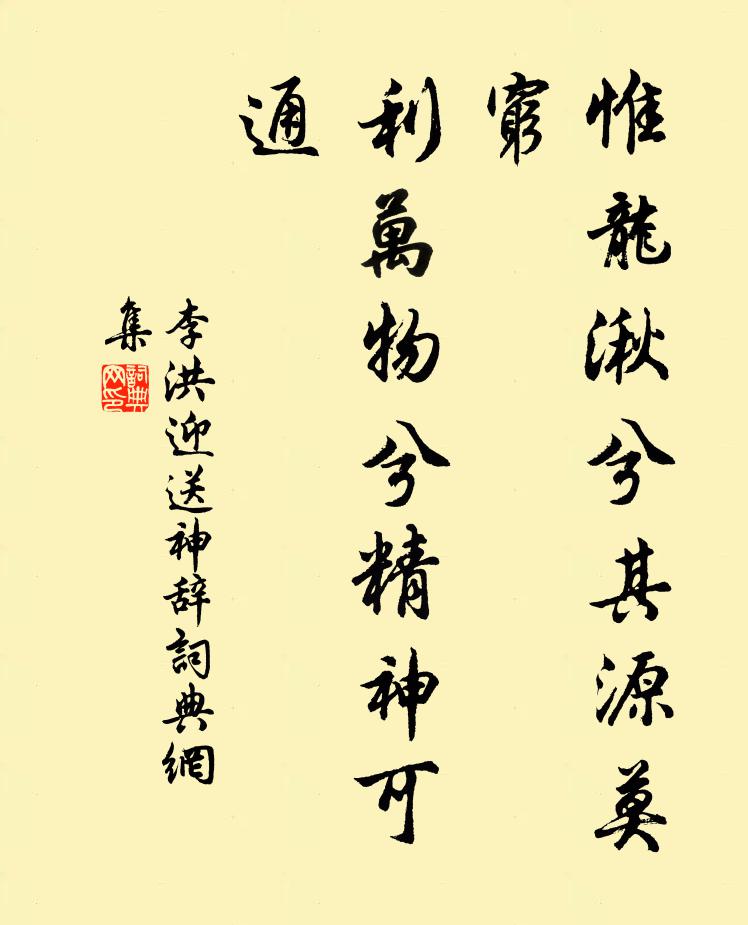 惟龍湫兮其源莫
窮
利萬物兮精神可
通
李洪迎送神辞詞典網
集
詞典
网印